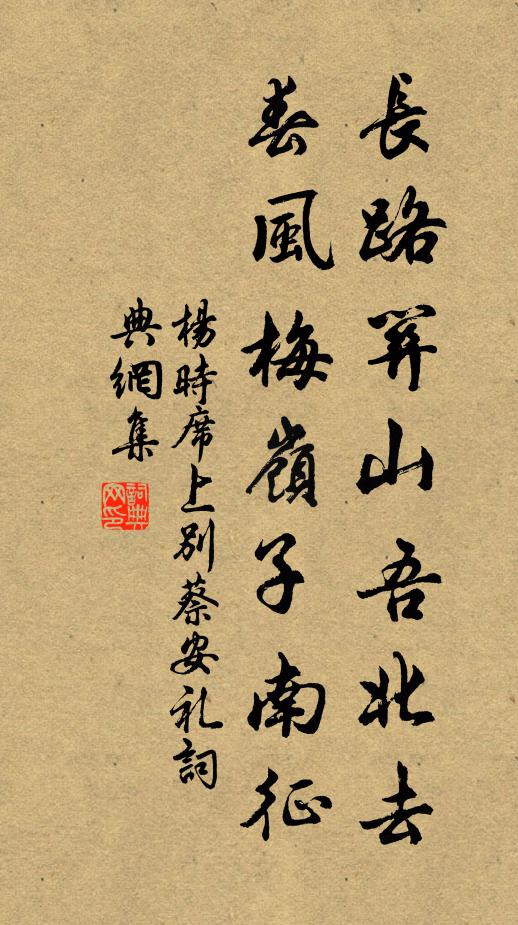 長路關山吾北去
春風梅嶺子南征
楊時席上別蔡安礼詞
典網集
詞典網印